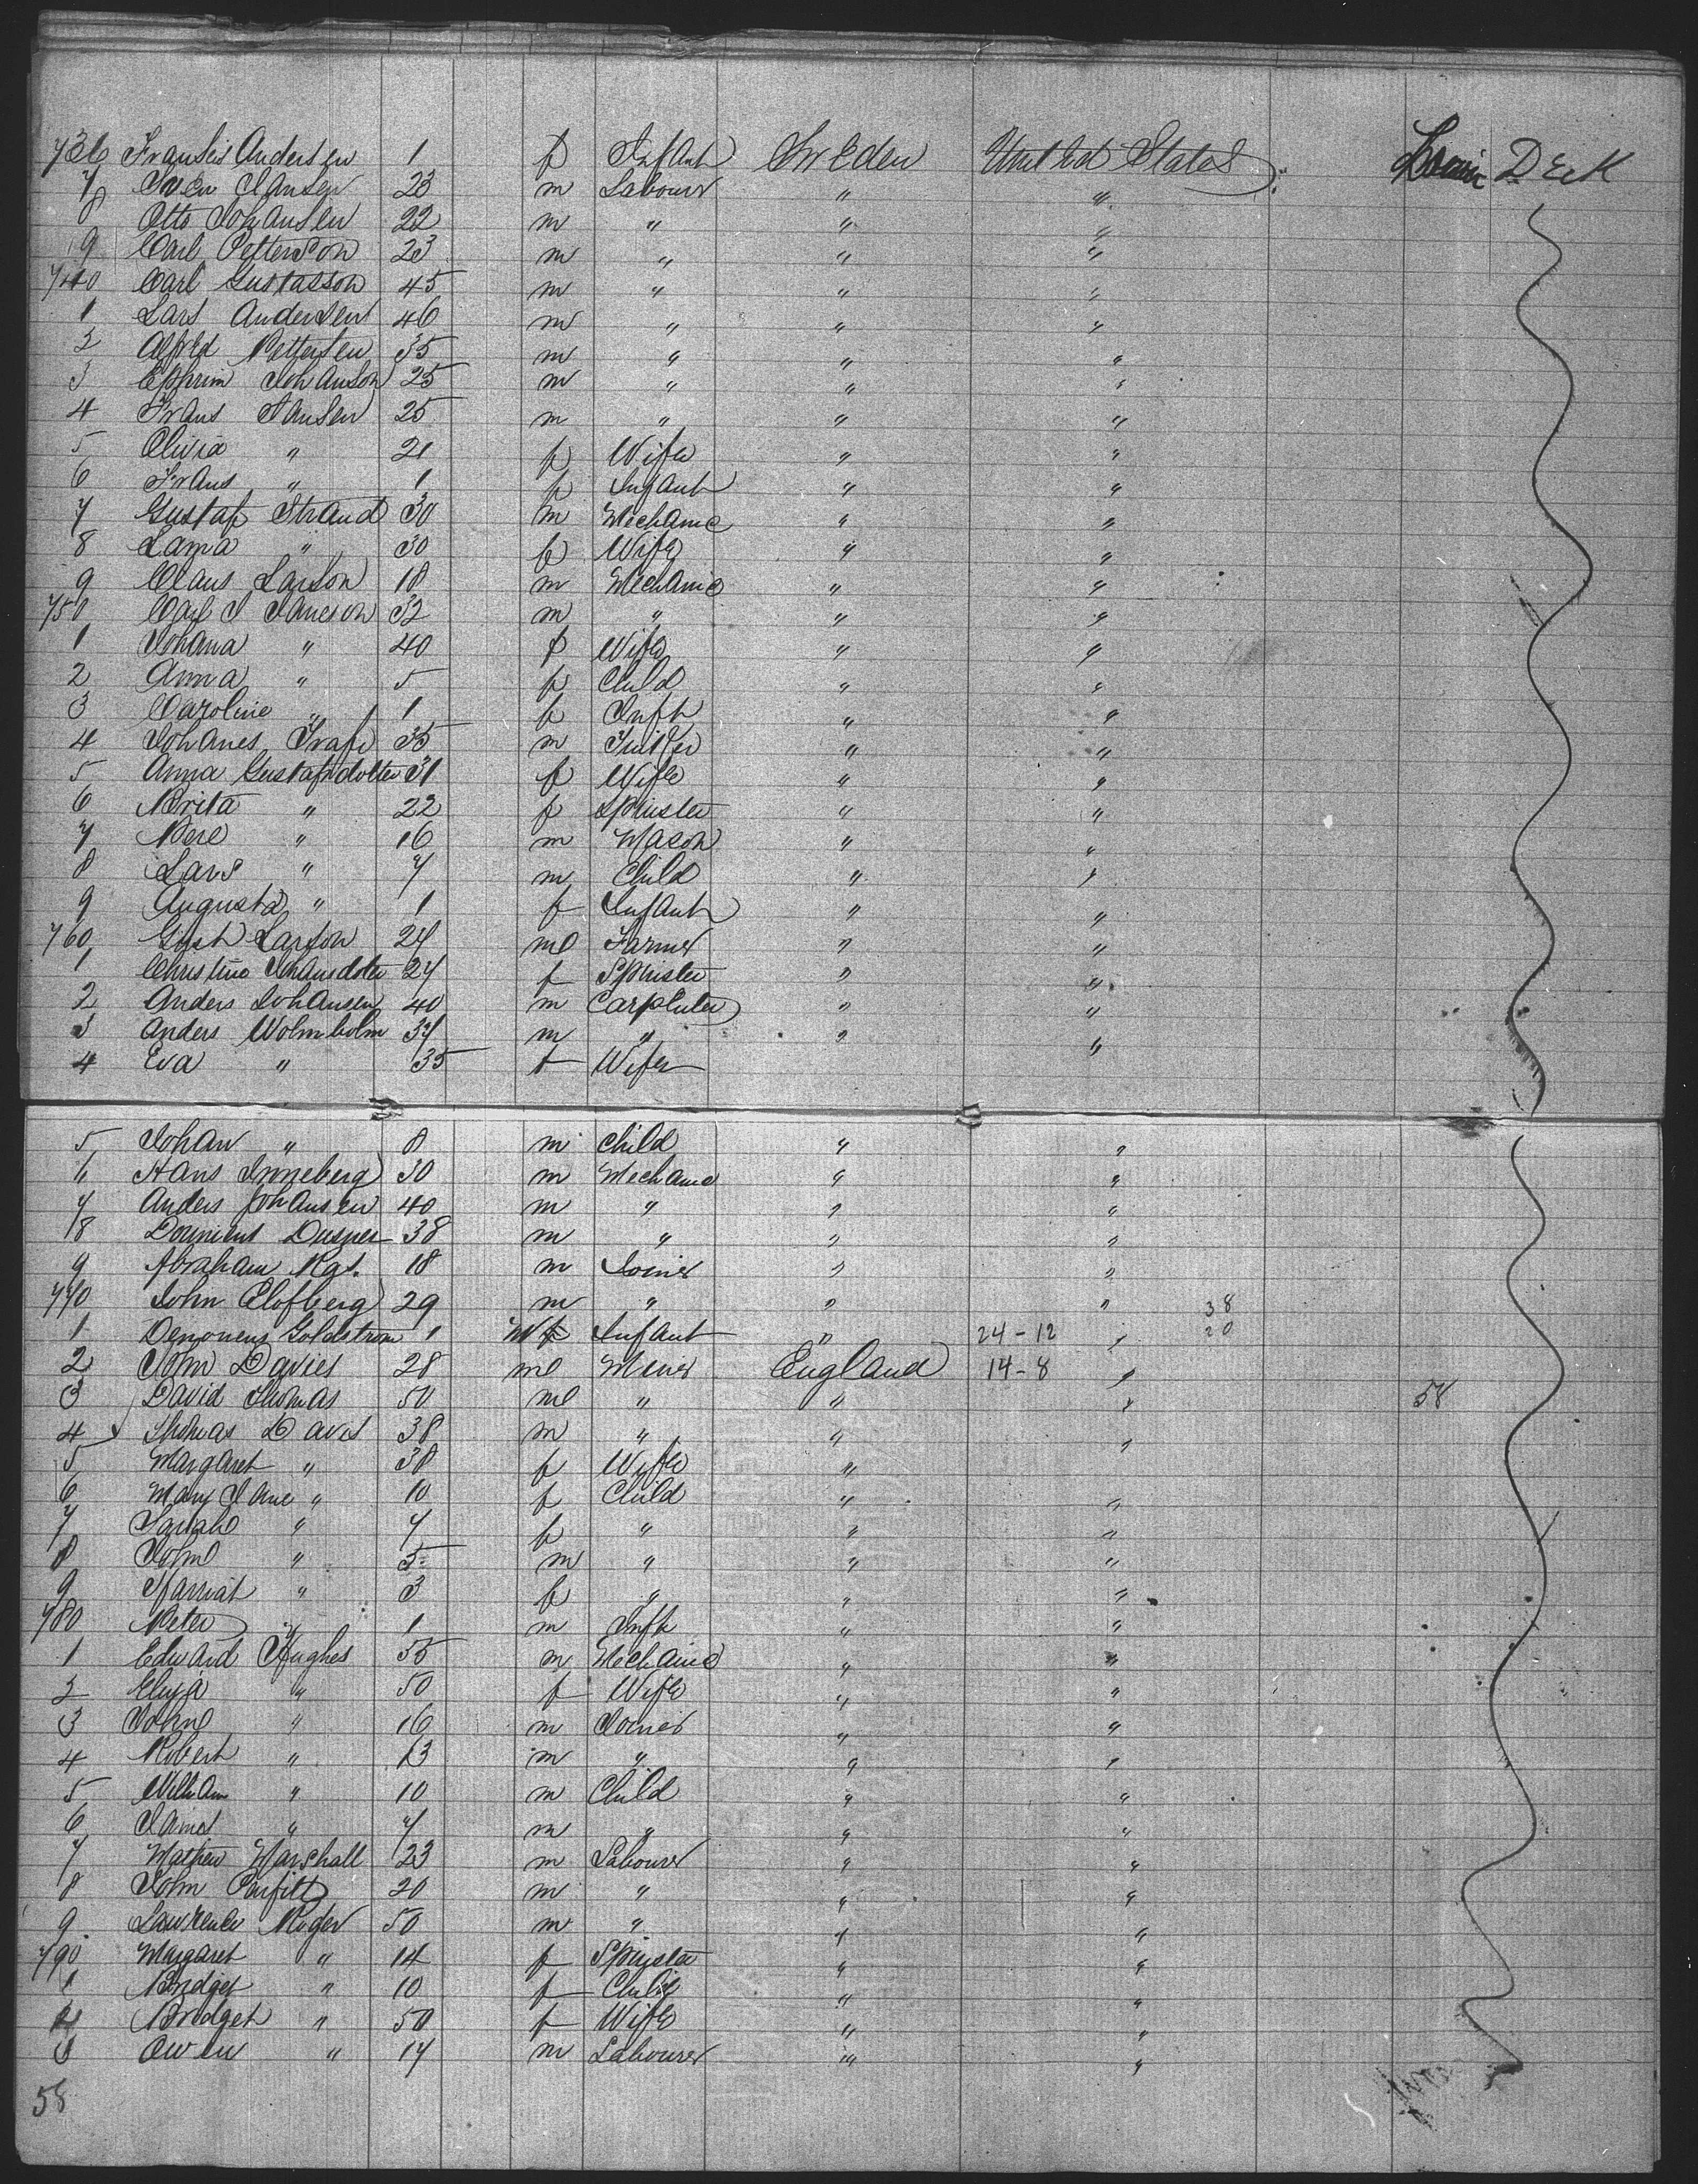 736 Fransis Andersen 1 f Infant Sweden United States Lower Deck
7 Sven Hansen 23 m Labourer " "
8 Otto Johansen 22 m " " "
9 Carl Petterson 23 m " " "
740 Carl Gustasson 45 m " " "
1 Lars Andersen 46 m " " "
2 Alfred Pettersen 35 m " " "
3 Ephrim Johanson 25 m " " "
4 Frans Hansen 25 m " " "
5 Olivia " 21 f Wife " "
6 Frans " 1 f Infant " "
7 Gustaf Strand 30 m Mechanic " "
8 Lama " 30 f Wife " "
9 Claus Larson 18 m Mechanic " "
750 Carl J Janeson 32 m " " "
1 Johana " 40 f Wife " "
2 Anna " 5 f Child " "
3 Caroline " 1 f Inft " "
4 Johanes 35 m " "
5 Anna Gustafsdotter 31 f Wife " "
6 Brita " 22 f Spinster " "
7 Pere " 16 m Mason " "
8 Lars " 7 m Child " "
9 Augusta " 1 f Infant " "
760 Gust Larson 24 ml Farmer " "
1 Christine Johansdoter 24 f Spinster " "
2 Anders Johansen 40 m Carpenter " "
3 Anders Wolmholm 34 m " " "
4 Eva " 35 f Wife
5 Johan " 8 m Child " "
6 Hans Inneberg 30 m Mechanic " "
7 Anders Johansen 40 m " " "
8 38 m " " "
9 Abraham 18 m Joiner " "
770 John Elofberg 29 m " " " 38
1 Goldstrom 1 Infant " 24-12 " 20
2 John Davies 28 ml Miner England 14-8 "
3 David Thomas 50 ml " " " 58
4 Thomas Davis 38 m " " "
5 Margaret " 38 f Wife "
6 Mary Jane " 10 f Child " "
7 Sarah " 7 f " " "
8 John " 5 m " " "
9 Harriat " 3 f " " "
780 Peter " 1 m Inft " "
1 Edward Hughes 55 m Mechanic " "
2 Eliza " 50 f Wife " "
3 John " 16 m Joiner " "
4 Robert " 13 m " " "
5 William " 10 m Child " "
6 James " 7 m " " "
7 Mathew Marshall 23 m Labourer " "
8 John Parfitt 20 m " " "
9 Lawrence Roger 50 m " " "
790 Margaret " 14 f Spinster " "
1 Bridget " 10 f Child " "
2 Bridget " 50 f Wife " "
3 Owen " 17 m Labourer " "
58